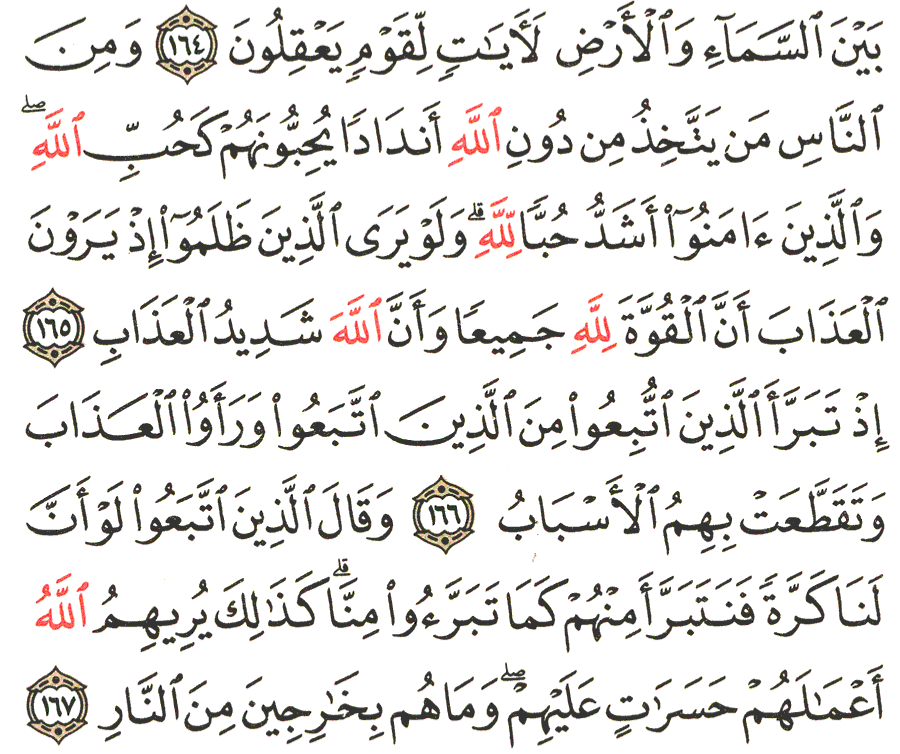 بَيْنَ ٱلسَّمَآءِ وَٱلْأَرْضِ لَأَيَـٰتٍ لِّقَوْمٍ يَعْقِلُونَ ١٦٤ وَمِنَ
ٱلنَّاسِ مَن يَتَّخِذُ مِن دُونِ ٱللَّهِ أَندَادًا يُحِبُّونَهُمْ كَحُبِّ ٱللَّهِ ۖ
وَٱلَّذِينَ ءَامَنُوٓا۟ أَشَدُّ حُبًّا لِّلَّهِ ۗ وَلَوْ يَرَى ٱلَّذِينَ ظَلَمُوٓا۟ إِذْ يَرَوْنَ
ٱلْعَذَابَ أَنَّ ٱلْقُوَّةَ لِلَّهِ جَمِيعًا وَأَنَّ ٱللَّهَ شَدِيدُ ٱلْعَذَابِ ١٦٥
إِذْ تَبَرَّأَ ٱلَّذِينَ ٱتُّبِعُوا۟ مِنَ ٱلَّذِينَ ٱتَّبَعُوا۟ وَرَأَوُا۟ ٱلْعَذَابَ
وَتَقَطَّعَتْ بِهِمُ ٱلْأَسْبَابُ ١٦٦ وَقَالَ ٱلَّذِينَ ٱتَّبَعُوا۟ لَوْ أَنَّ
لَنَا كَرَّةً فَنَتَبَرَّأَ مِنْهُمْ كَمَا تَبَرَّءُوا۟ مِنَّا ۗ كَذَٰلِكَ يُرِيهِمُ ٱللَّهُ
أَعْمَـٰلَهُمْ حَسَرَٰتٍ عَلَيْهِمْ ۖ وَمَا هُم بِخَـٰرِجِينَ مِنَ ٱلنَّارِ ١٦٧